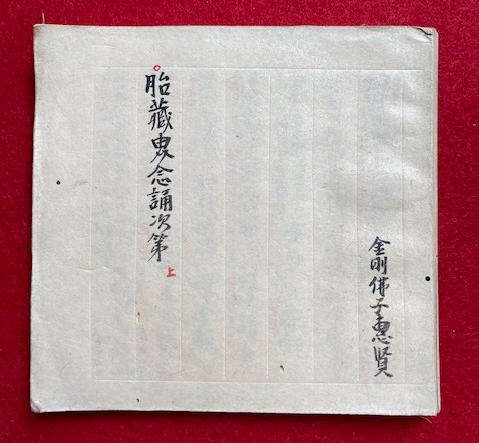 金剛佛子惠賢
胎藏界念誦次第上